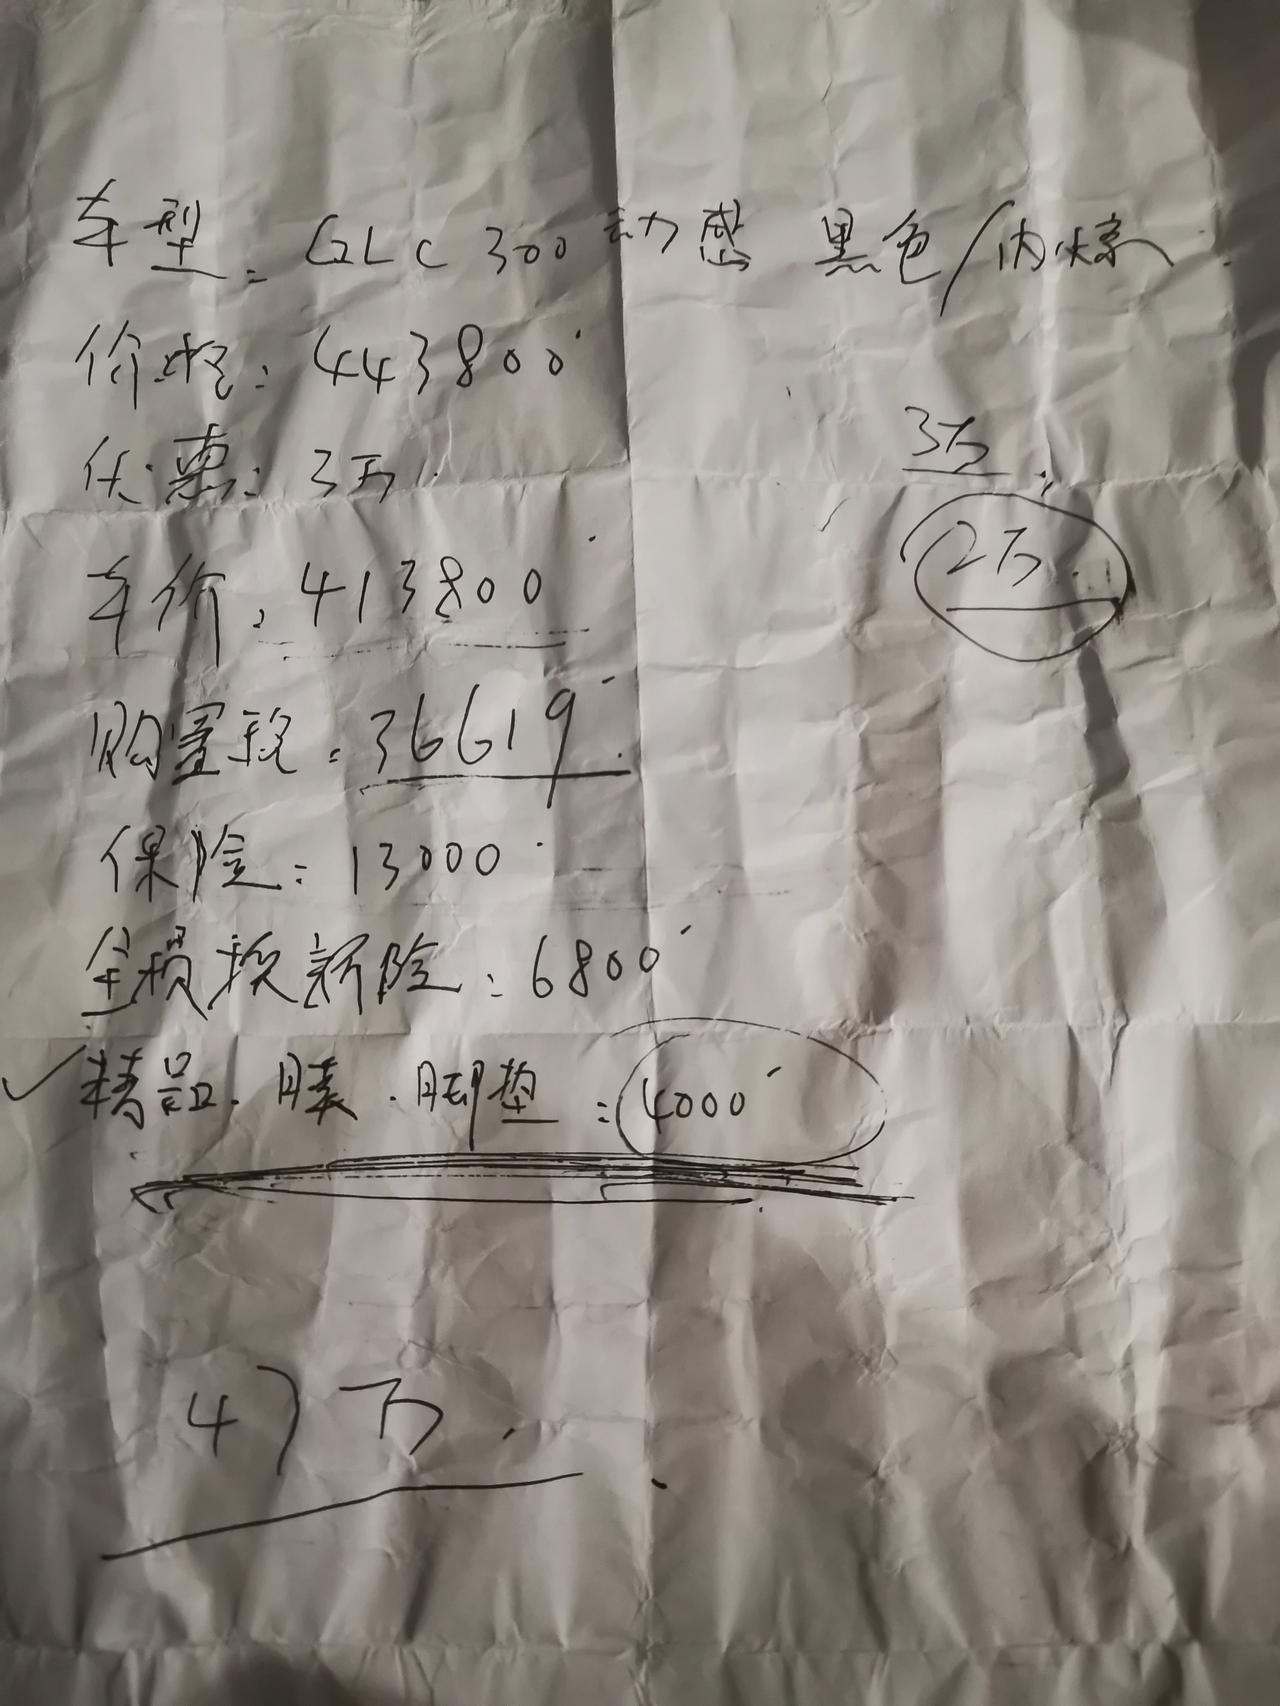 车型：GLC 300 动感 黑色/内棕
价格：443800
优惠：3万
3万
2万
车价：413800
购置税：36619
保险：13000
全损换新险：6800
精品.膜.脚垫：4000
47万